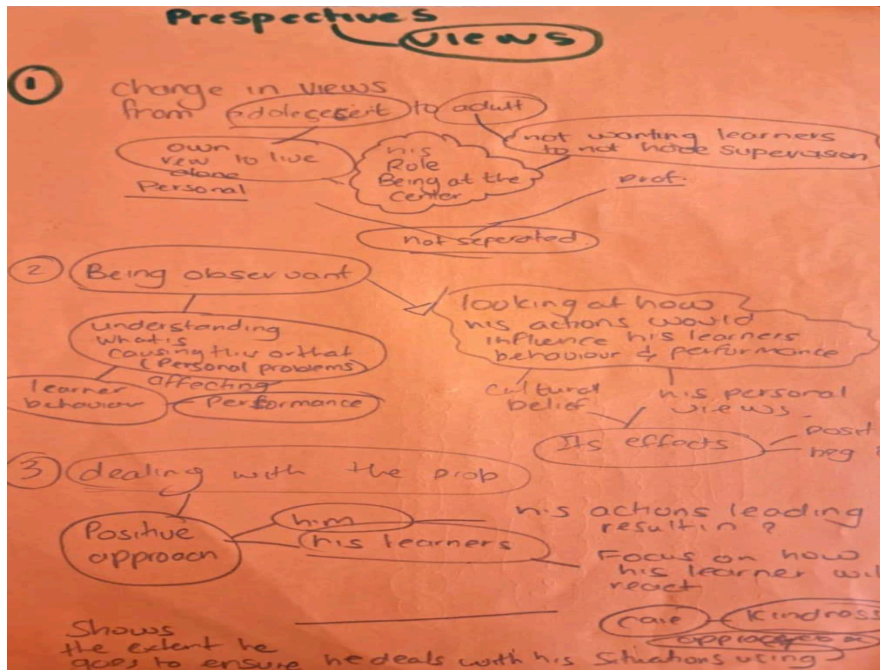 Prespectives
views
1
change in views
from adolescent to adult
own
view to live
alone
Personal
his
Role
Being at the
center
not wanting learners
to not have supervision
prof.
not seperated
2
Being observant
understanding
what is
causing this or that
(Personal problems
affecting
learner
behaviour
Performance
looking at how
his actions would
influence his learners
behaviour & performance
cultural
belief
his personal
views.
Its effects
posit
neg
3
dealing with the prob
Positive
approach
him
his learners
his actions leading
resultin ?
Focus on how
his learner wil
react
care
Kindness
Shows
the extent he
goes to ensure he deals with his situations using